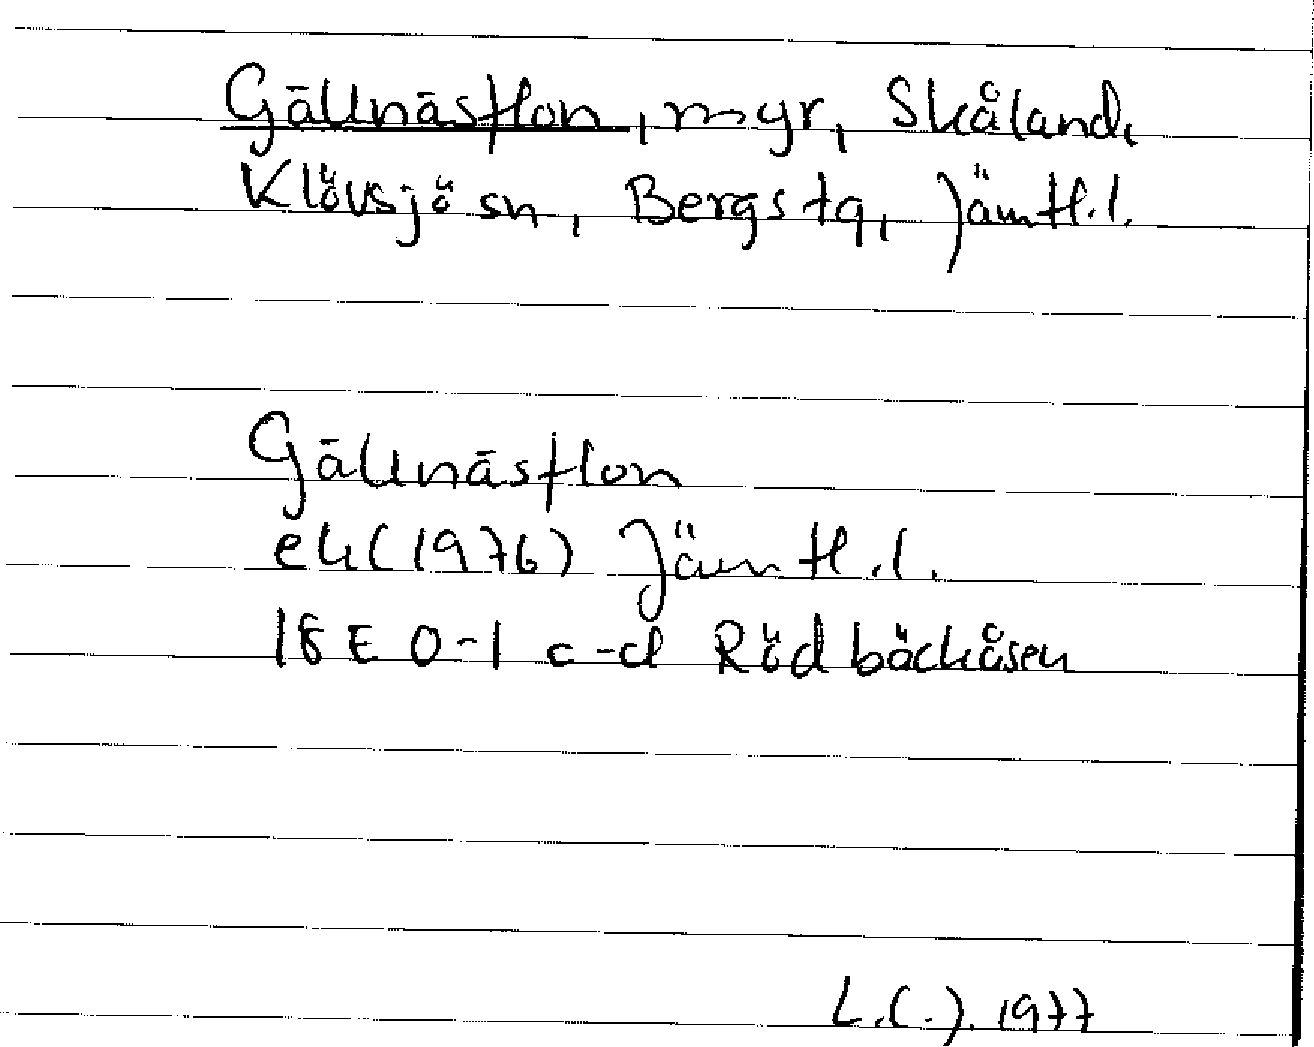 Gällnästlon, myr, Skåland,
Klövsjö sn, Bergs tg, Jämtl. l.
Gällnästlon
ek (1976) Jämtl. l.
18E 0-1 c-d Rödbäckåsen
L.(.). 1977